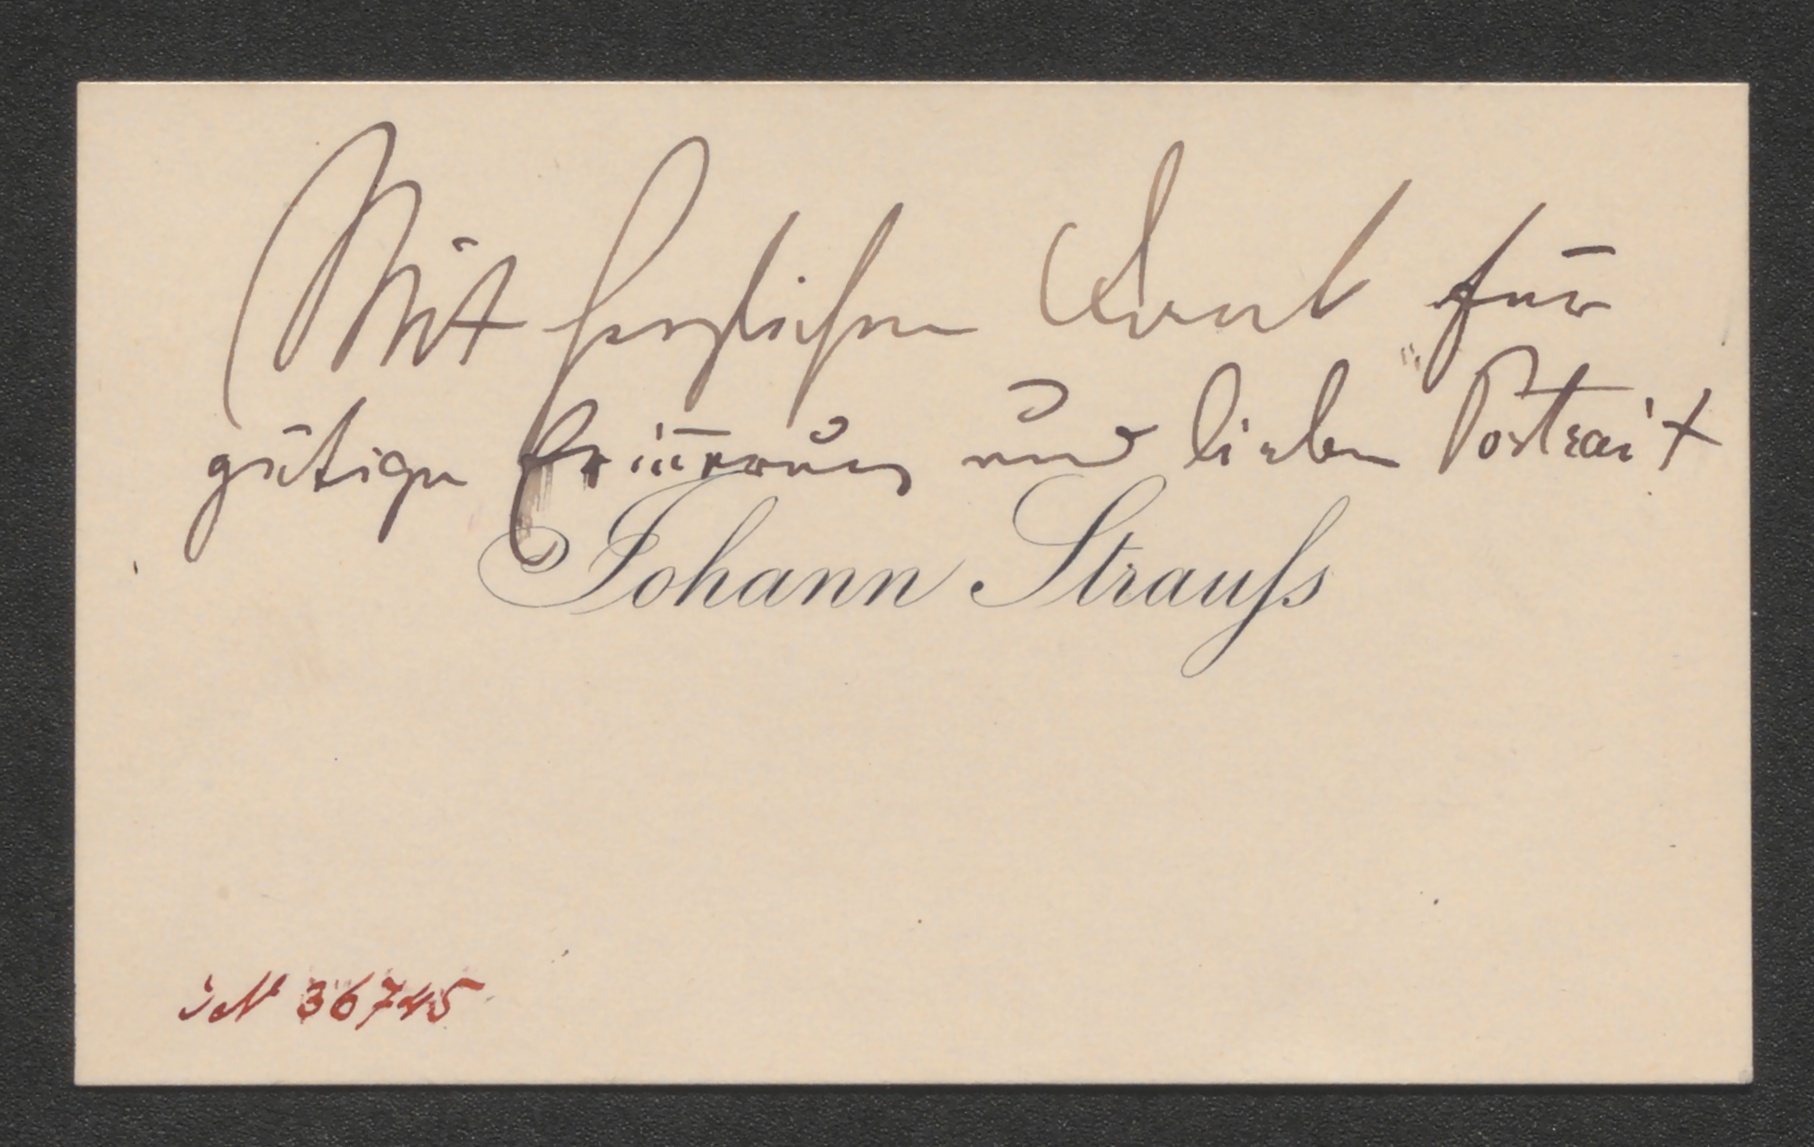 Mit herzlichem Dank für
gütige Erinnerung und liebes Portrait
Johann Strauss
IN 36745